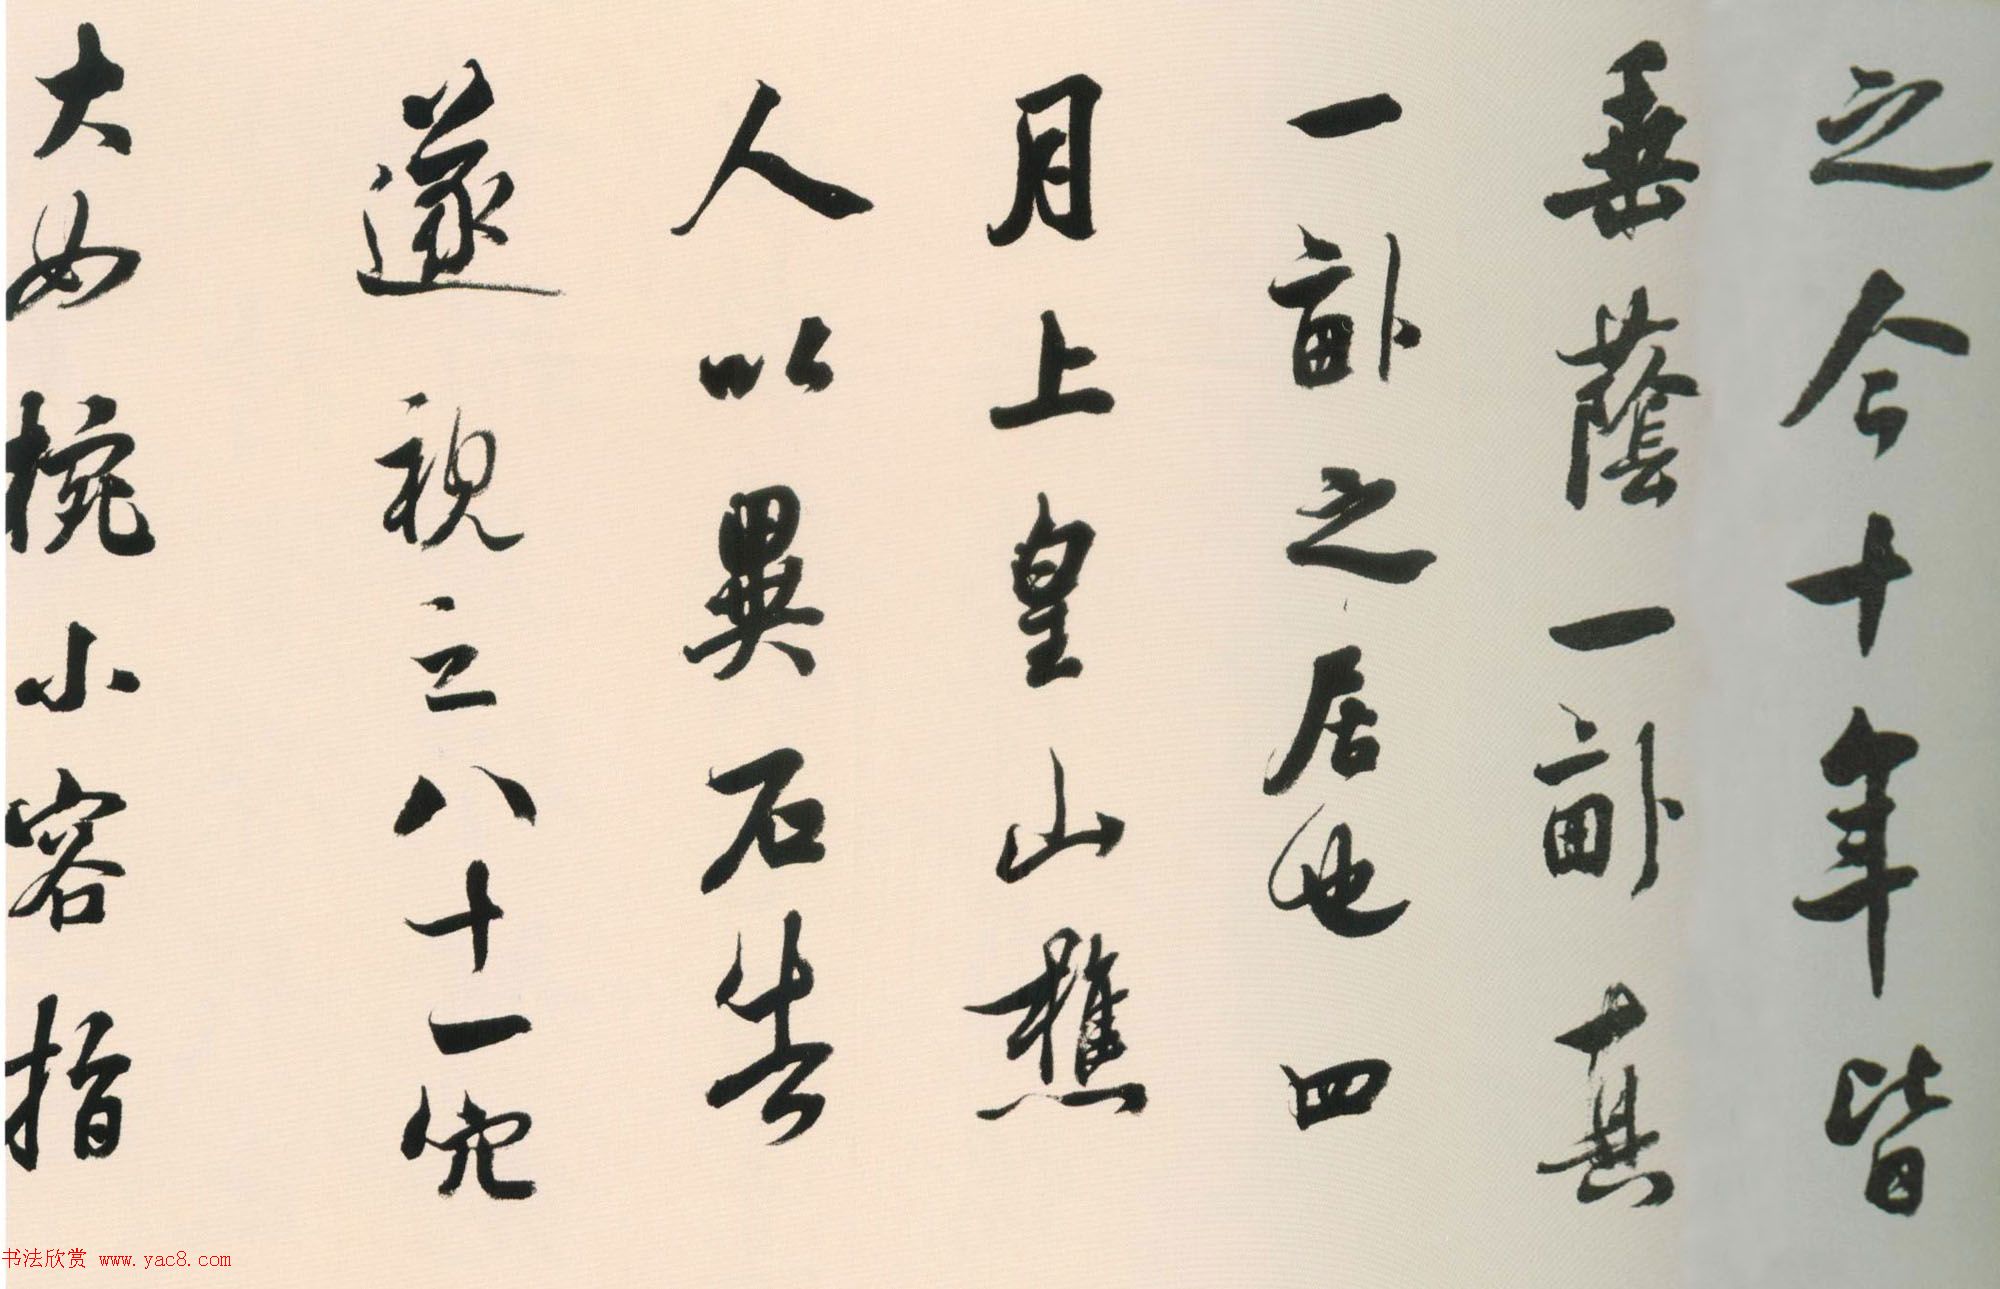 之今十年皆
垂蔭一畝真
一畝之居也四
月上皇山樵
人以異石告
遂視之八十一穴
大如碗小容指
书法欣赏 www.yac8.com